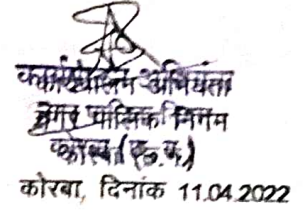 कार्यपालन अभियंता
नगर पालिक निगम
कोरबा (छ.ग.)
कोरबा, दिनांक 11.04.2022